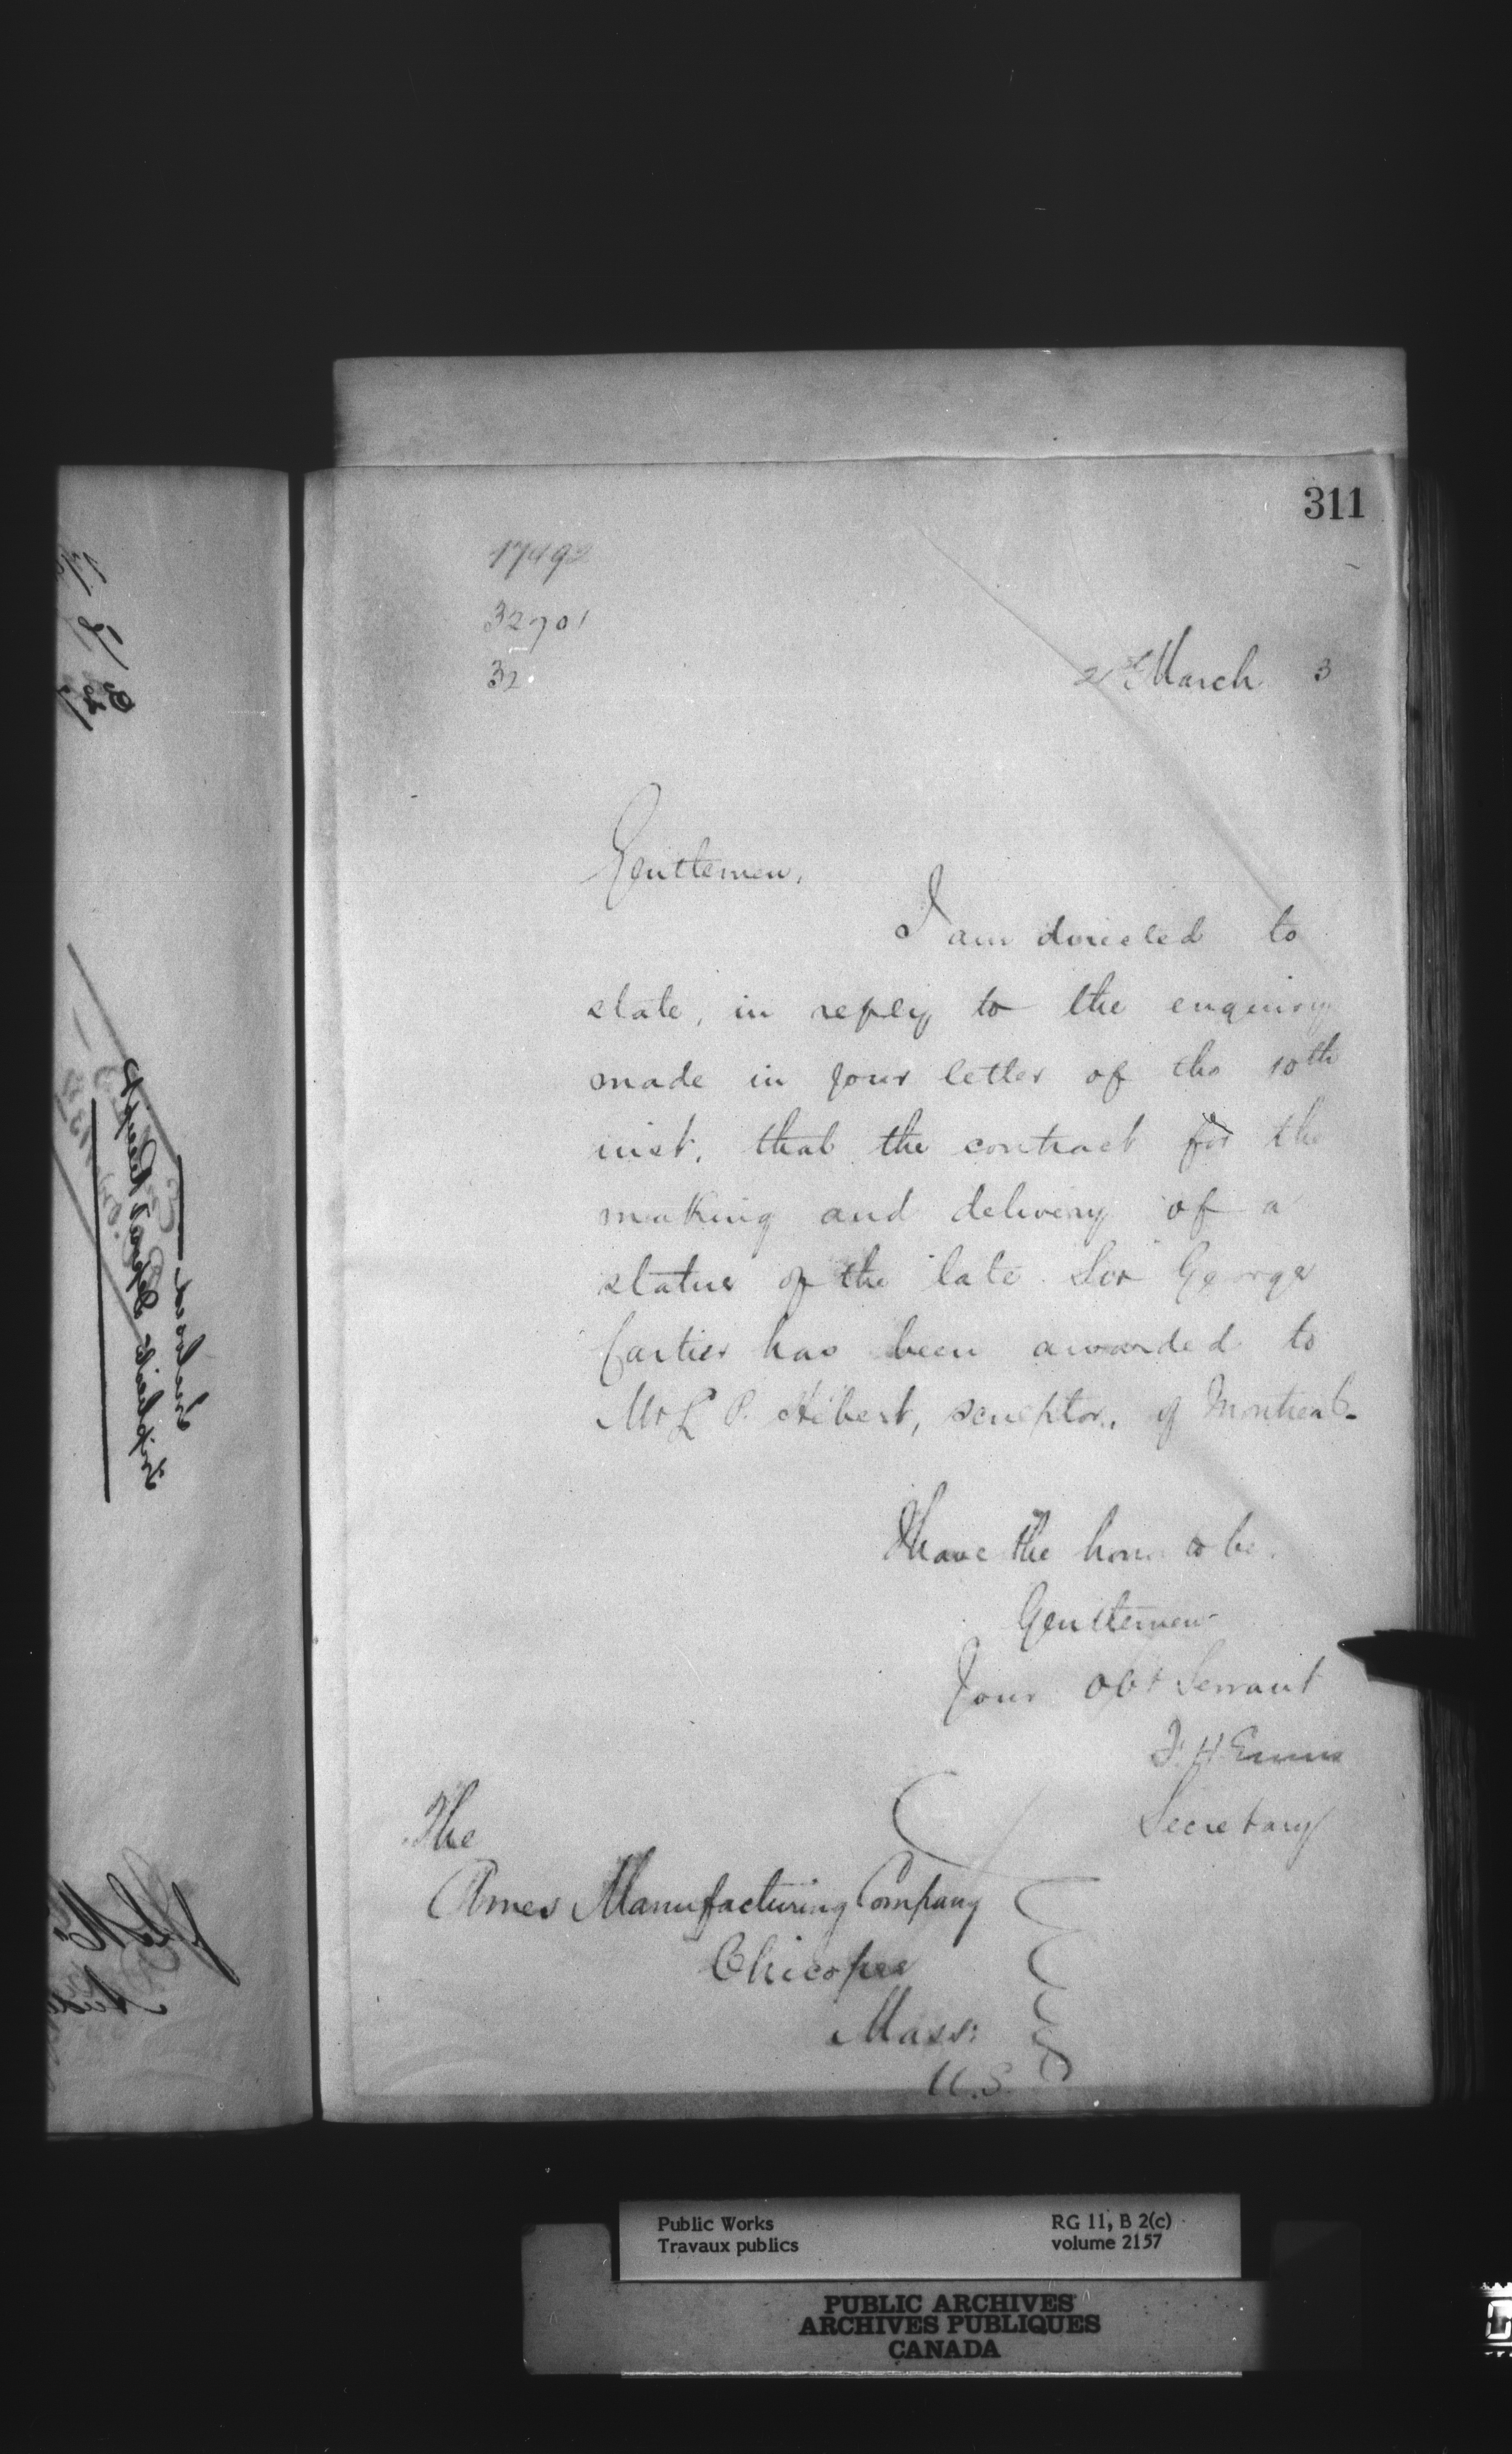 311
17492
32701
32
March 3
Gentlemen,
I am directed to
state, in reply to the enquiry
made in your letter of the 10th
inst. that the contract for the
making and delivery of a
statue of the late Sir George
Cartier has been awarded to
Mr L. P. Hébert, sculptor, of Montreal.
I have the honor to be
Gentlemen
Your Obt Servant
F. H. Ennis
Secretary
The
Ames Manufacturing Company
Chicopee
Mass:
U.S.
Public Works
Travaux publics
RG 11, B 2(c)
volume 2157
PUBLIC ARCHIVES
ARCHIVES PUBLIQUES
CANADA